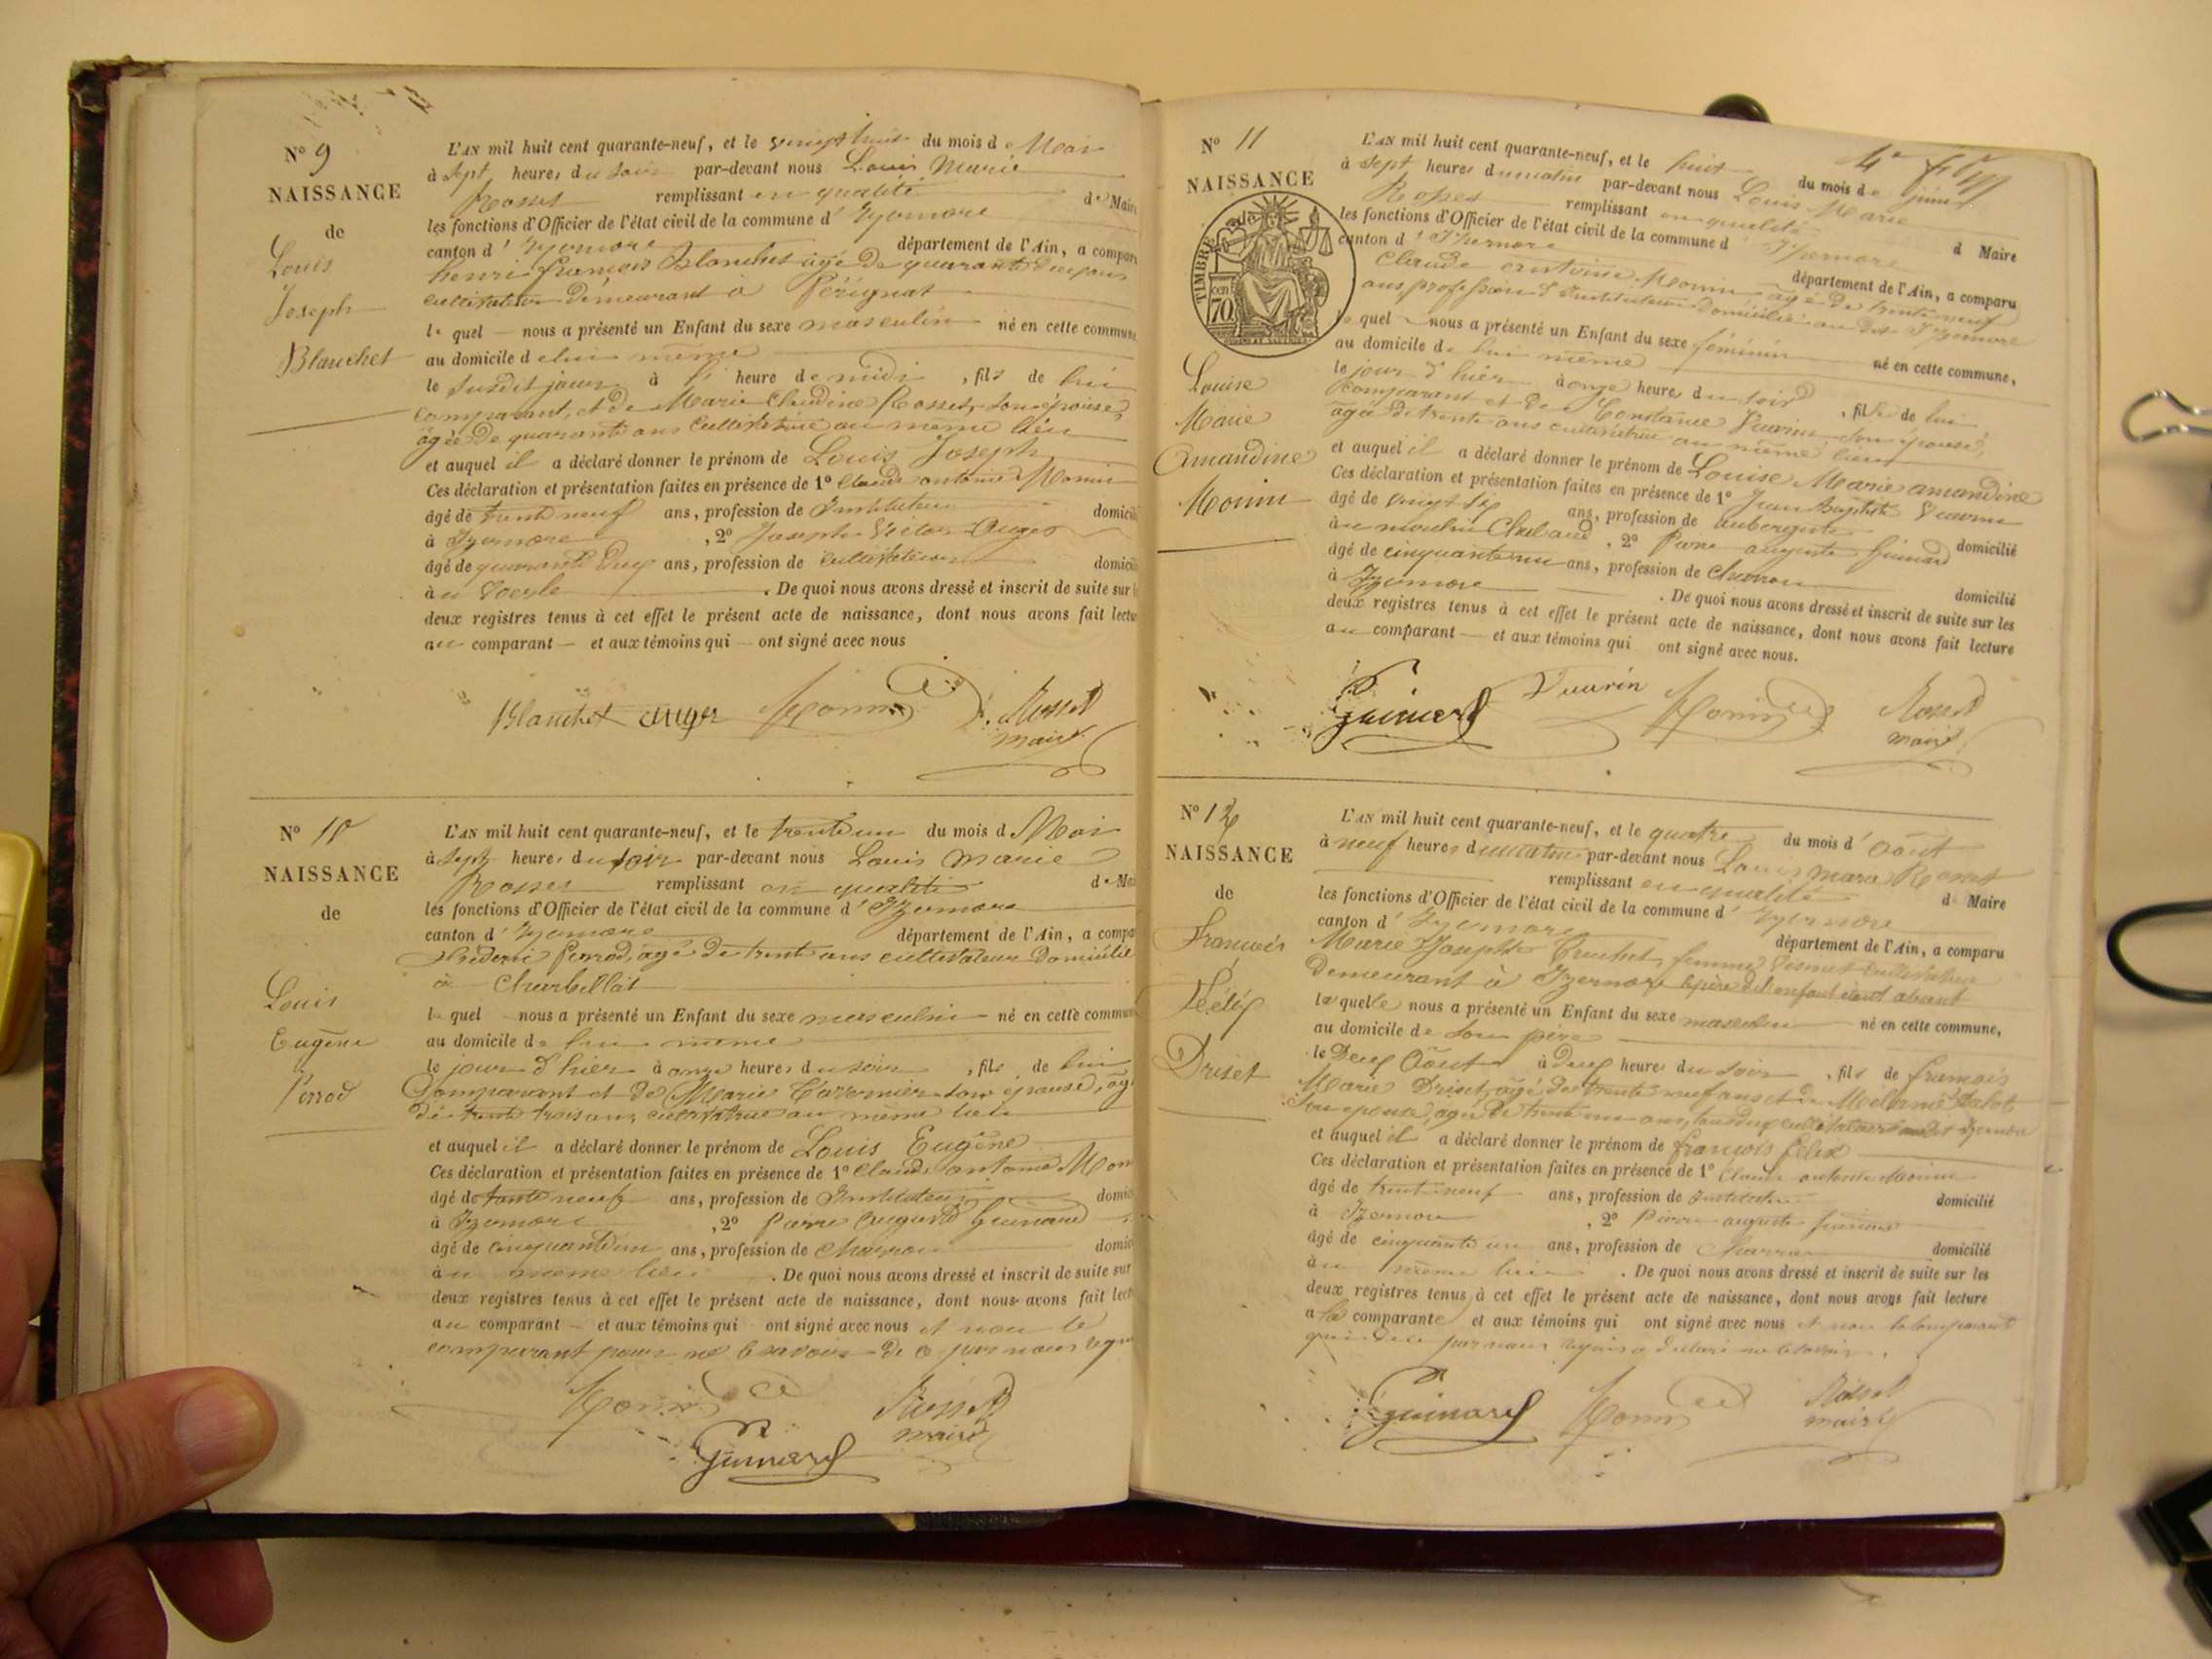 N° 9
NAISSANCE
de
Louis
Joseph
Blanchet
L'AN mil huit cent quarante-neuf, et le vingt huit du mois de Mai
à sept heures du soir par-devant nous Louis Marie
Rosset remplissant en qualité de Maire
les fonctions d'Officier de l'état civil de la commune d'Izernore
canton d'Izernore département de l'Ain, a comparu
henri françois Blanchet âgé de quarante deux ans
cultivateur demeurant à Pérignat
lequel nous a présenté un Enfant du sexe masculin né en cette commune
au domicile de lui même
le susdit jour à l' heure de midi, fils de lui
comparant, et de Marie Claudine Rosset, son épouse,
âgée de quarante ans cultivatrice au même lieu
et auquel il a déclaré donner le prénom de Louis Joseph
Ces déclaration et présentation faites en présence de 1° Claude antoine Monin
âgé de trente neuf ans, profession de Instituteur domicilié
à Izernore, 2° Joseph Victor Auger
âgé de quarante deux ans, profession de cultivateur domicilié
à . De quoi nous avons dressé et inscrit de suite sur
deux registres tenus à cet effet le présent acte de naissance, dont nous avons fait lecture
au comparant et aux témoins qui ont signé avec nous
Blanchet auger Monin Rosset
maire
N° 10
NAISSANCE
de
Louis
Eugène
Perrod
L'AN mil huit cent quarante-neuf, et le trente un du mois de Mai
à sept heures du soir par-devant nous Louis Marie
Rosset remplissant en qualité de Maire
les fonctions d'Officier de l'état civil de la commune d'Izernore
canton d'Izernore département de l'Ain, a comparu
fréderic Perrod, âgé de trente ans cultivateur domicilié
à Charbillat
lequel nous a présenté un Enfant du sexe masculin né en cette commune
au domicile de lui même
le jour d'hier à onze heures du soir, fils de lui
Comparant et de Marie son épouse, âgée
de trente trois ans, cultivatrice au même lieu
et auquel il a déclaré donner le prénom de Louis Eugène
Ces déclaration et présentation faites en présence de 1° Claude antoine Monin
âgé de trente neuf ans, profession de Instituteur domicilié
à Izernore, 2° Pierre auguste Guinard
âgé de cinquante un ans, profession de charron domicilié
au même lieu. De quoi nous avons dressé et inscrit de suite sur
deux registres tenus à cet effet le présent acte de naissance, dont nous avons fait lecture
au comparant et aux témoins qui ont signé avec nous et non le
comparant pour ne le savoir de ce par nous requis
Monin Rosset
maire
Guinard
N° 11
NAISSANCE
TIMBRE
cen
70
Louise
Marie
Amandine
Monin
L'AN mil huit cent quarante-neuf, et le huit du mois de juin
à sept heures du matin par-devant nous Louis Marie
Rosset remplissant en qualité d Maire
les fonctions d'Officier de l'état civil de la commune d'Izernore
canton d'Izernore département de l'Ain, a comparu
Claude antoine Monin âgé de trente neuf
ans profession d'Instituteur domicilié au dit Izernore
lequel nous a présenté un Enfant du sexe féminin né en cette commune,
au domicile de lui même
le jour d'hier à onze heures du soir, fille de lui
comparant et de Constance Vuarin, son épouse,
âgée de trente ans cultivatrice au même lieu
et auquel il a déclaré donner le prénom de Louise Marie amandine
Ces déclaration et présentation faites en présence de 1° Jean Baptiste Vuarin
âgé de vingt six ans, profession de aubergiste domicilié
au moulin Chabaud, 2° Pierre auguste Guinard
âgé de cinquante un ans, profession de Charron domicilié
à Izernore. De quoi nous avons dressé et inscrit de suite sur les
deux registres tenus à cet effet le présent acte de naissance, dont nous avons fait lecture
au comparant et aux témoins qui ont signé avec nous.
Guinard Vuarin Monin Rosset
maire
N° 12
NAISSANCE
de
François
Félix
Driset
L'AN mil huit cent quarante-neuf, et le quatre du mois d'Août
à neuf heures du matin par-devant nous Louis Marie Rosset
remplissant en qualité de Maire
les fonctions d'Officier de l'état civil de la commune d'Izernore
canton d'Izernore département de l'Ain, a comparu
Marie Josephte femme cultivatrice
demeurant à Izernore le père de l'enfant étant absent
laquelle nous a présenté un Enfant du sexe masculin né en cette commune,
au domicile de son père
le Deux Août à deux heures du soir, fils de françois
Marie Driset, âgé de trente neuf ans et de Mélanie
son épouse, âgée de trente un ans, tous deux cultivateurs audit Izernore
et auquel il a déclaré donner le prénom de françois félix
Ces déclaration et présentation faites en présence de 1° Claude antoine Monin
âgé de trente neuf ans, profession de Instituteur domicilié
à Izernore, 2° Pierre auguste Guinard
âgé de cinquante un ans, profession de Charron domicilié
au même lieu. De quoi nous avons dressé et inscrit de suite sur les
deux registres tenus à cet effet le présent acte de naissance, dont nous avons fait lecture
à la comparante et aux témoins qui ont signé avec nous et non la comparante
qui de ce par nous requis a déclaré ne le savoir.
Guinard Monin Rosset
maire